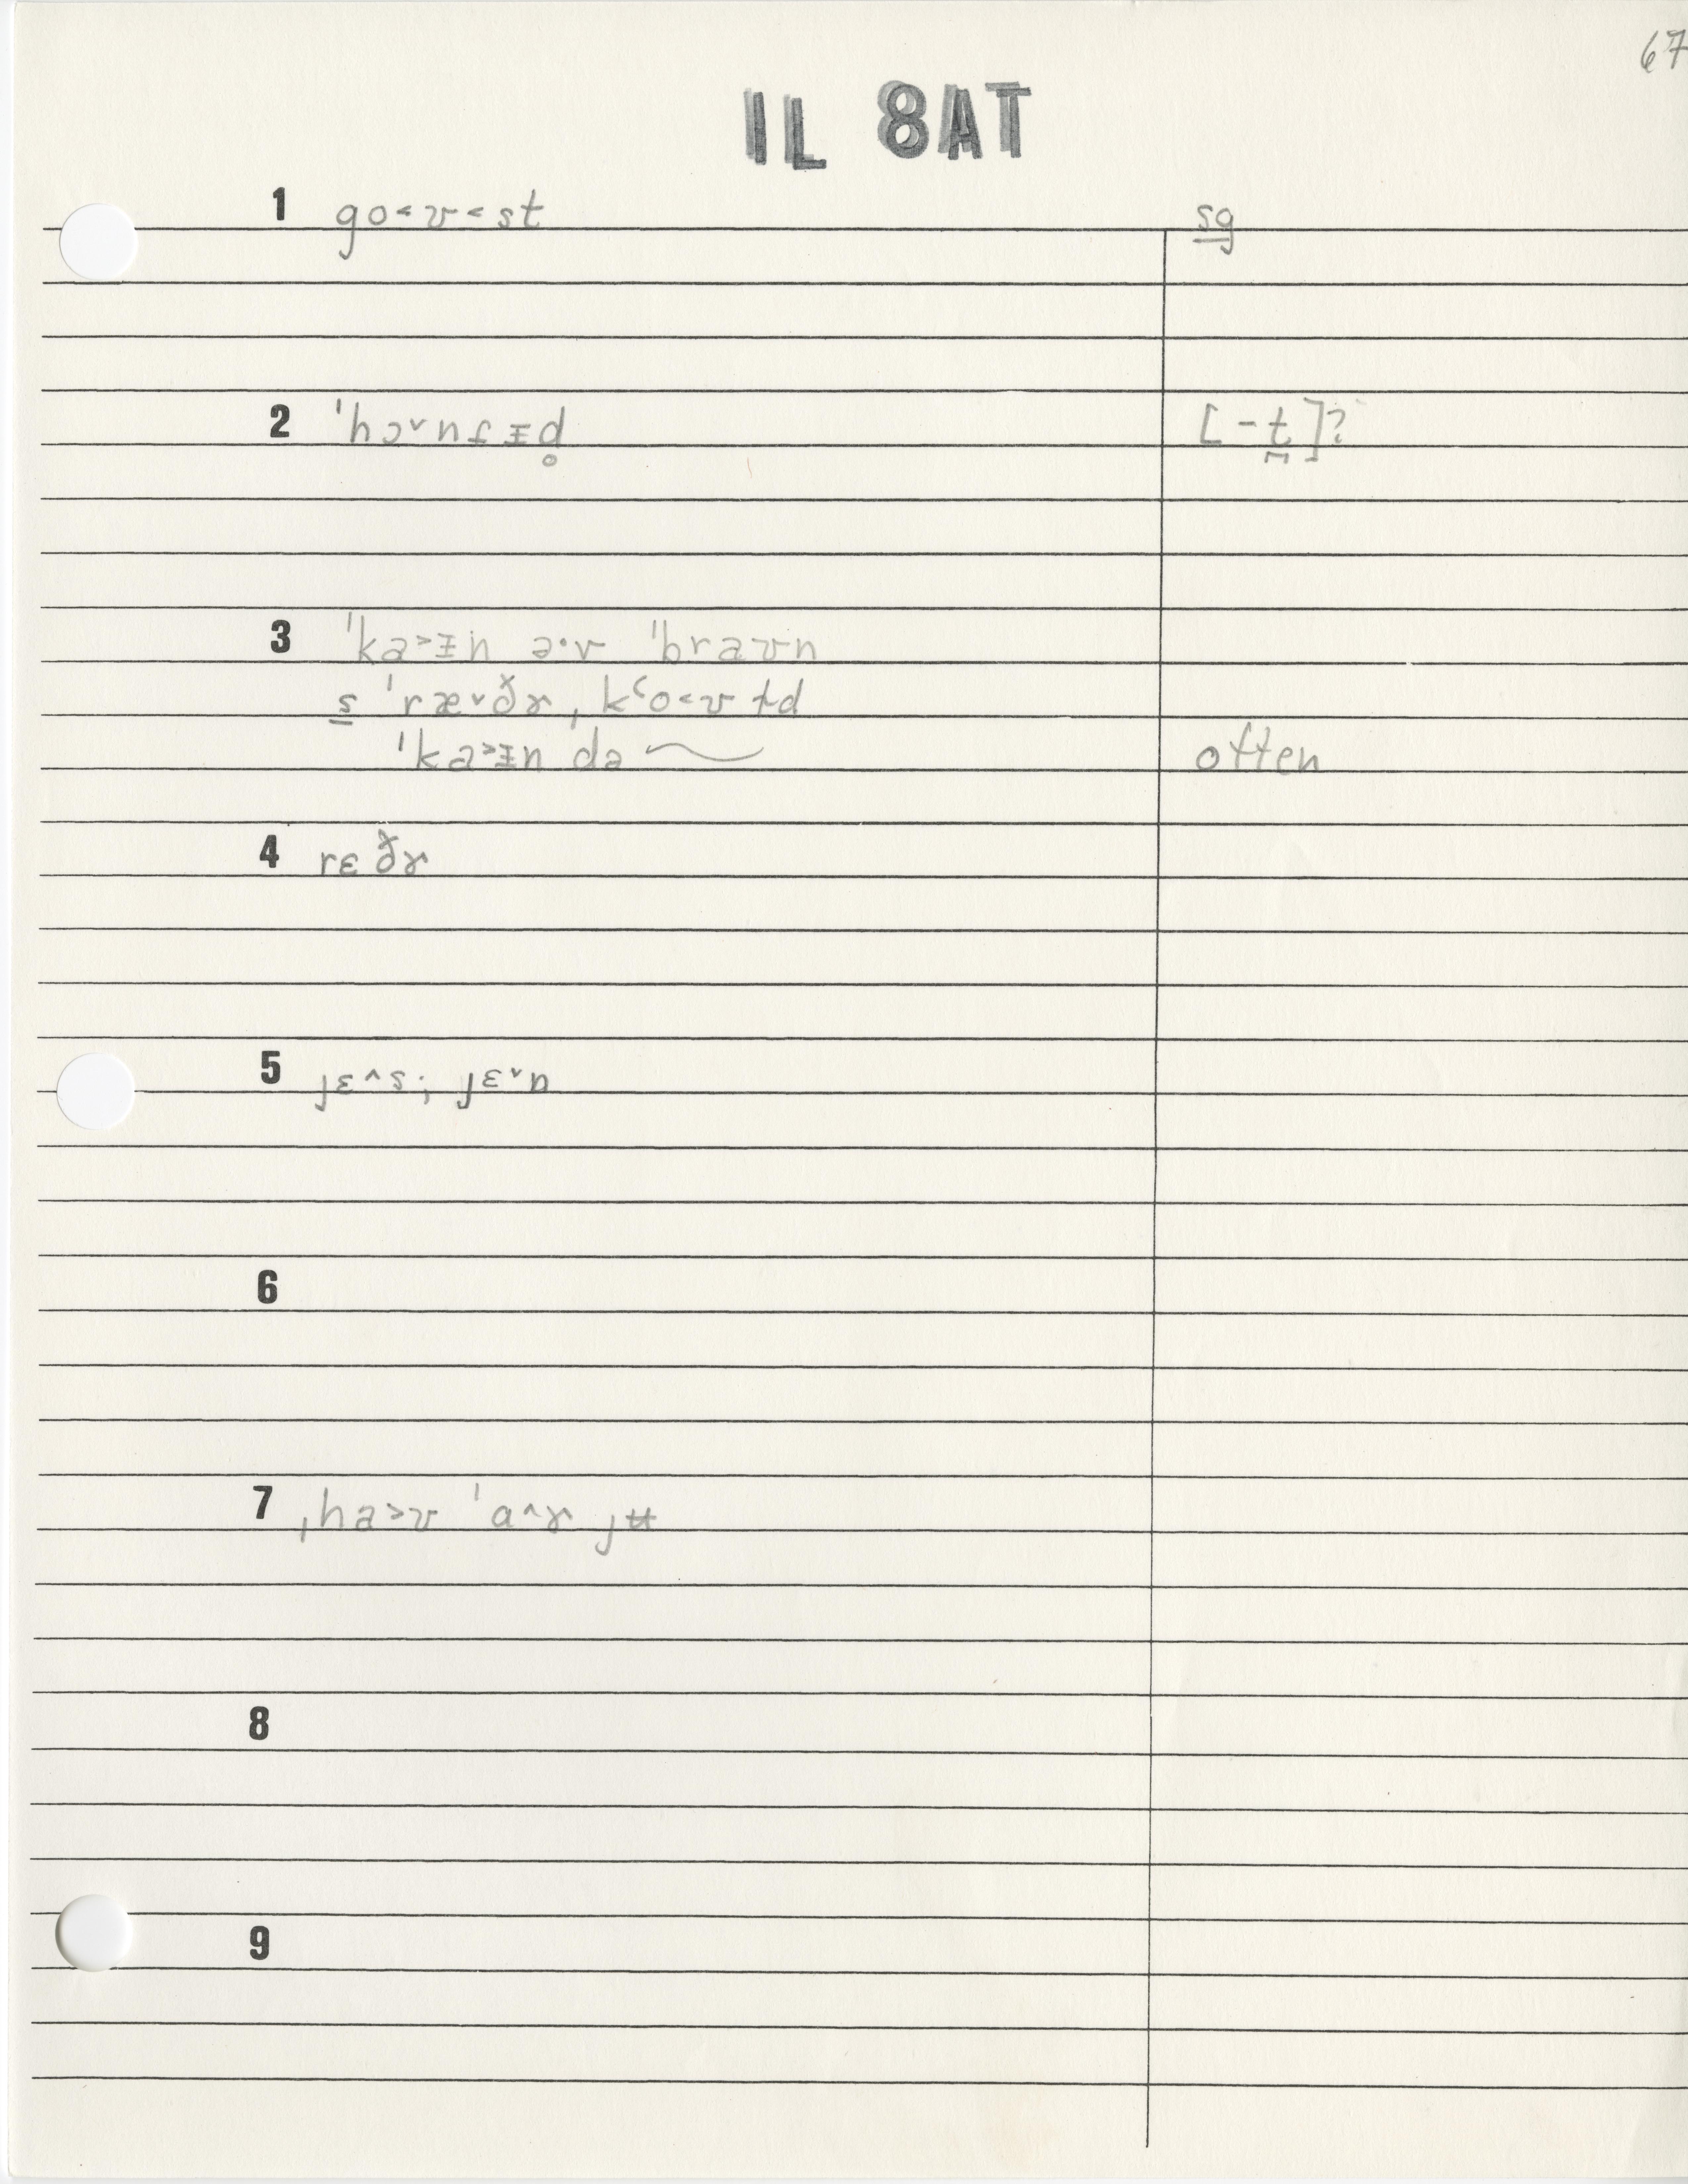 67
IL 8AT
1 go˂ʊ˂st sg
2 ˈhɔ˅nfᵻd̥ [-t̺]?
3 ˈka˃ᵻn ə·v ˈˈbraʊn
s̲ ˈræ˅ðɚ, kʻo˂ʊ ɫd
ˈka˃ᵻn də often
4 rɛðɚ
5 jɛ˄s; jɛ˅n
6
7 ˌha˃ʊ ˈɑ˄ɚ jʉ
8
9